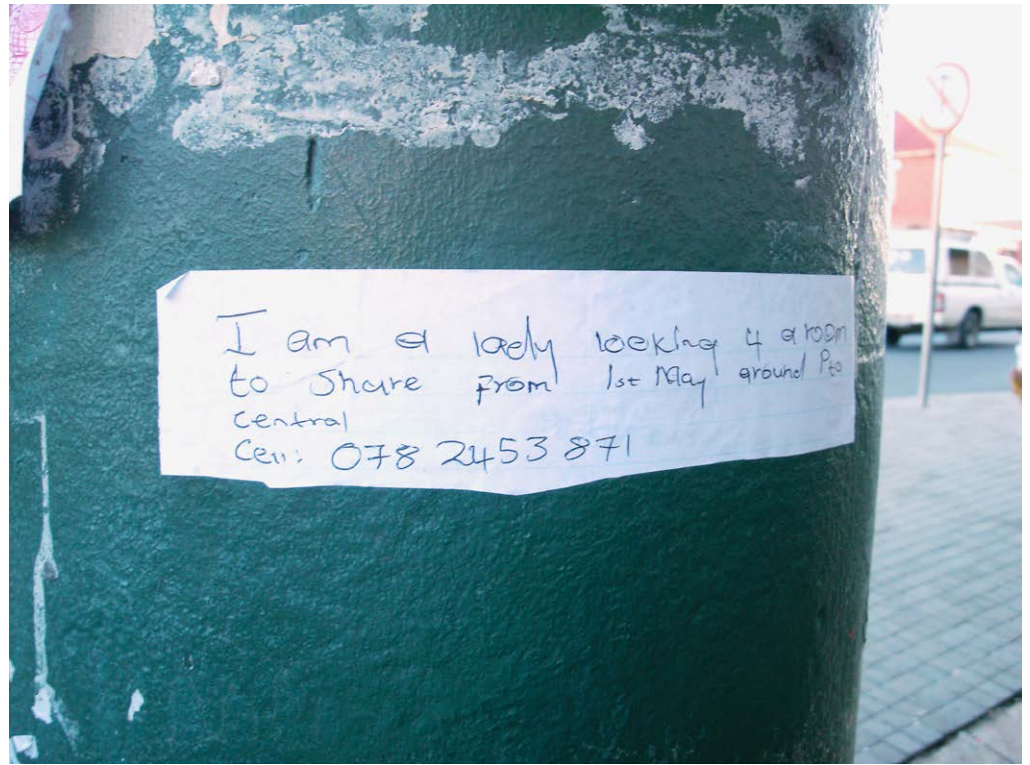 I am a lady looking 4 a room
to share from 1st May around Pta
central
Cell: 078 2453 871